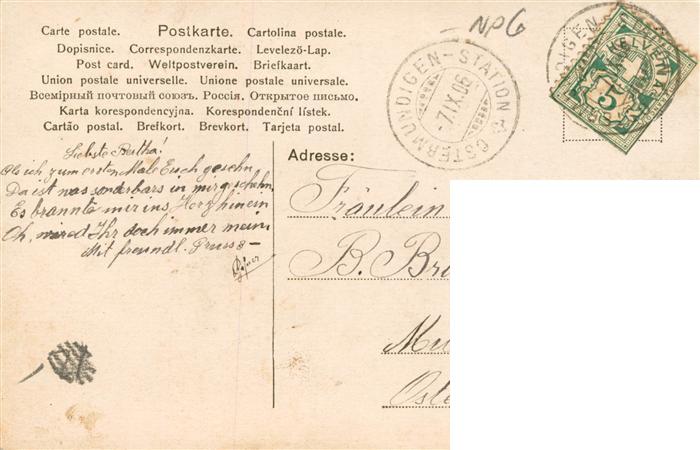 NPG
Carte postale. Postkarte. Cartolina postale.
Dopisnice. Correspondenzkarte. Levelező-Lap.
Post card. Weltpostverein. Briefkaart.
Union postale universelle. Unione postale universale.
Всемірный почтовый союзъ. Россія. Открытое письмо.
Karta korespondencyjna. Korespondenční lístek.
Cartão postal. Brefkort. Brevkort. Tarjeta postal.
OSTERMUNDIGEN-STATION
-7.IX.06
HELVETIA
5
Liebste Bertha!
Als ich zum ersten Male Euch gesehn
Da ist was sonderbars in mir geschehn,
Es brannte mir ins Herz hinein
Oh, wired Ihr doch immer mein
Mit freundl. Gruss –
Adresse:
Fräulein
B.